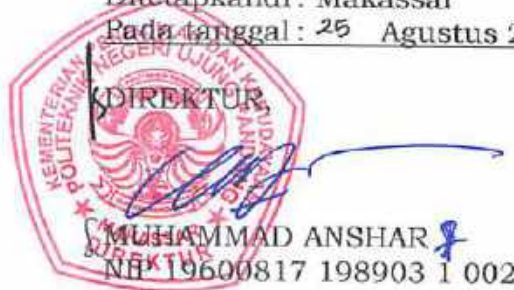 Ditetapkandi : Makassar
Pada tanggal : 25 Agustus 2
DIREKTUR,
MUHAMMAD ANSHAR
NIP 19600817 198903 1 002
KEMENTERIAN PENDIDIKAN DAN KEBUDAYAAN
POLITEKNIK NEGERI UJUNG PANDANG
MAKASSAR
DIREKTUR